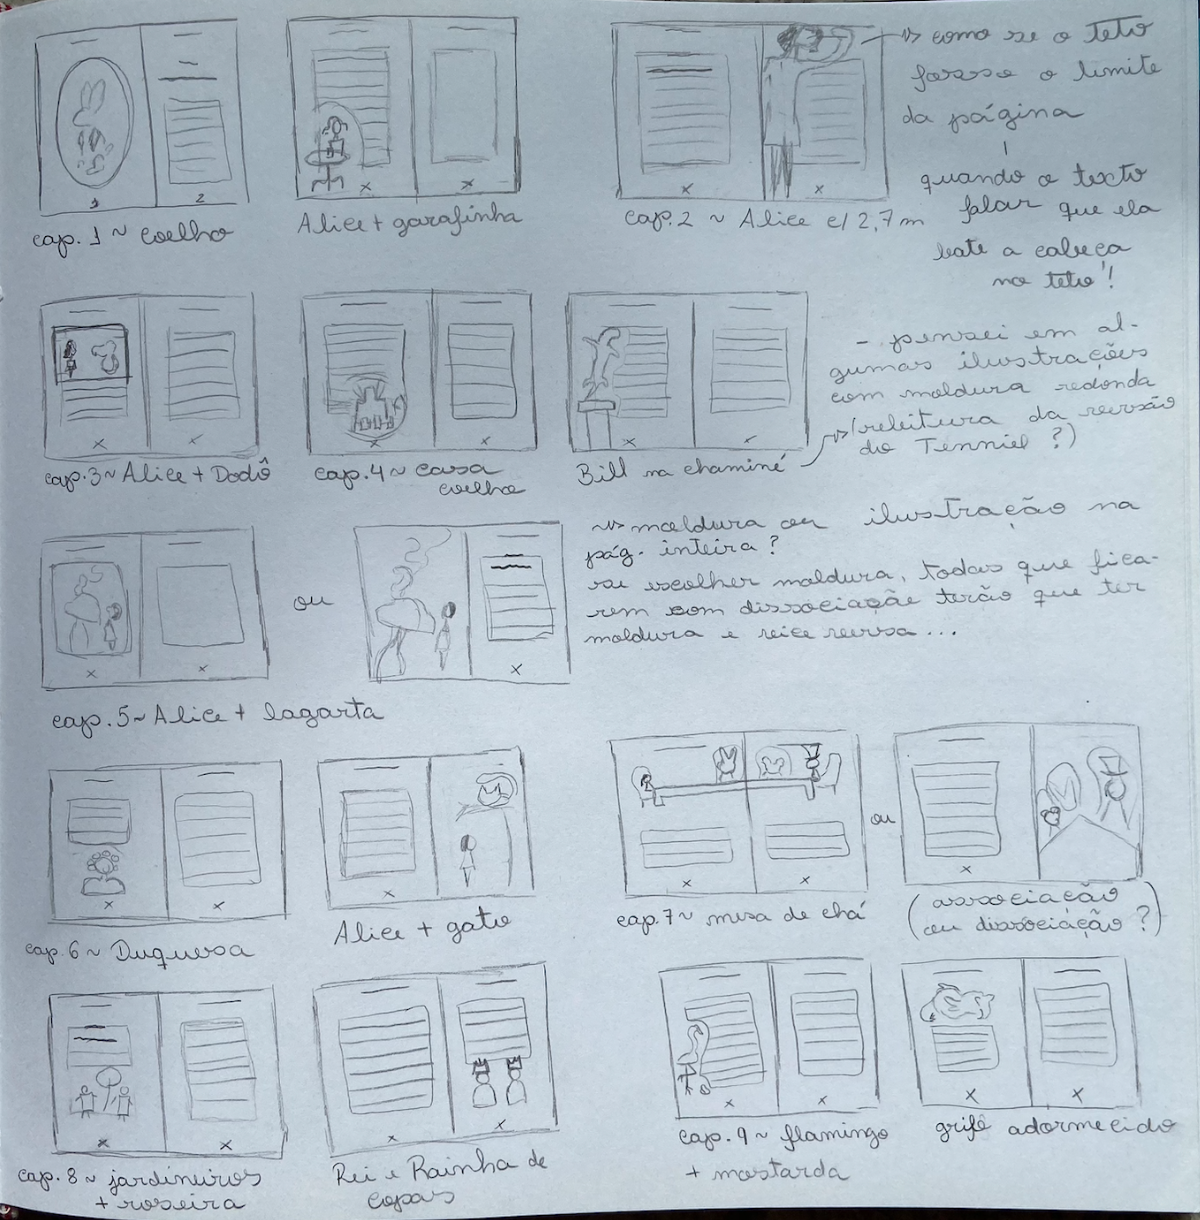 1
2
cap. 1 ~ coelho
x
x
Alice + garafinha
x
x
cap. 2 ~ Alice c/ 2,7 m
como se o teto
fosse o limite
da página
quando o texto
falar que ela
bate a cabeça
no teto!
x
x
cap. 3 ~ Alice + Dodô
x
x
cap. 4 ~ casa
coelho
x
x
Bill na chaminé
- pensei em al-
gumas ilustrações
com moldura redonda
(releitura da versão
do Tenniel?)
x
x
ou
x
cap. 5 ~ Alice + lagarta
moldura ou ilustração na
pág. inteira?
se escolher moldura, todas que fica-
rem com dissociação terão que ter
moldura e vice versa...
x
x
cap. 6 ~ Duquesa
x
Alice + gato
x
x
cap. 7 ~ mesa de chá
ou
x
(associação
ou dissociação?)
x
x
cap. 8 ~ jardineiros
+ roseira
x
x
Rei e Rainha de
copas
x
x
cap. 9 ~ flamingo
+ mostarda
x
x
grifo adormecido